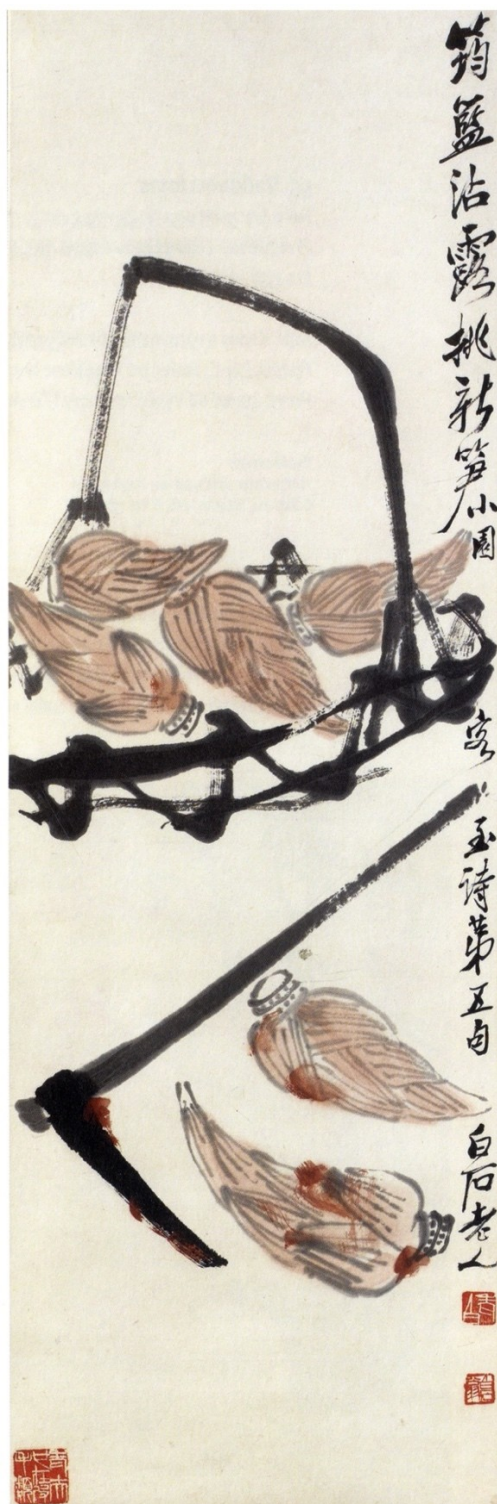 筠籃沾露挑新笋小園客至詩第五句白石老人